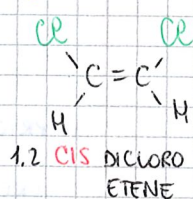 Cl Cl
C = C
H H
1,2 CIS DICLORO
ETENE